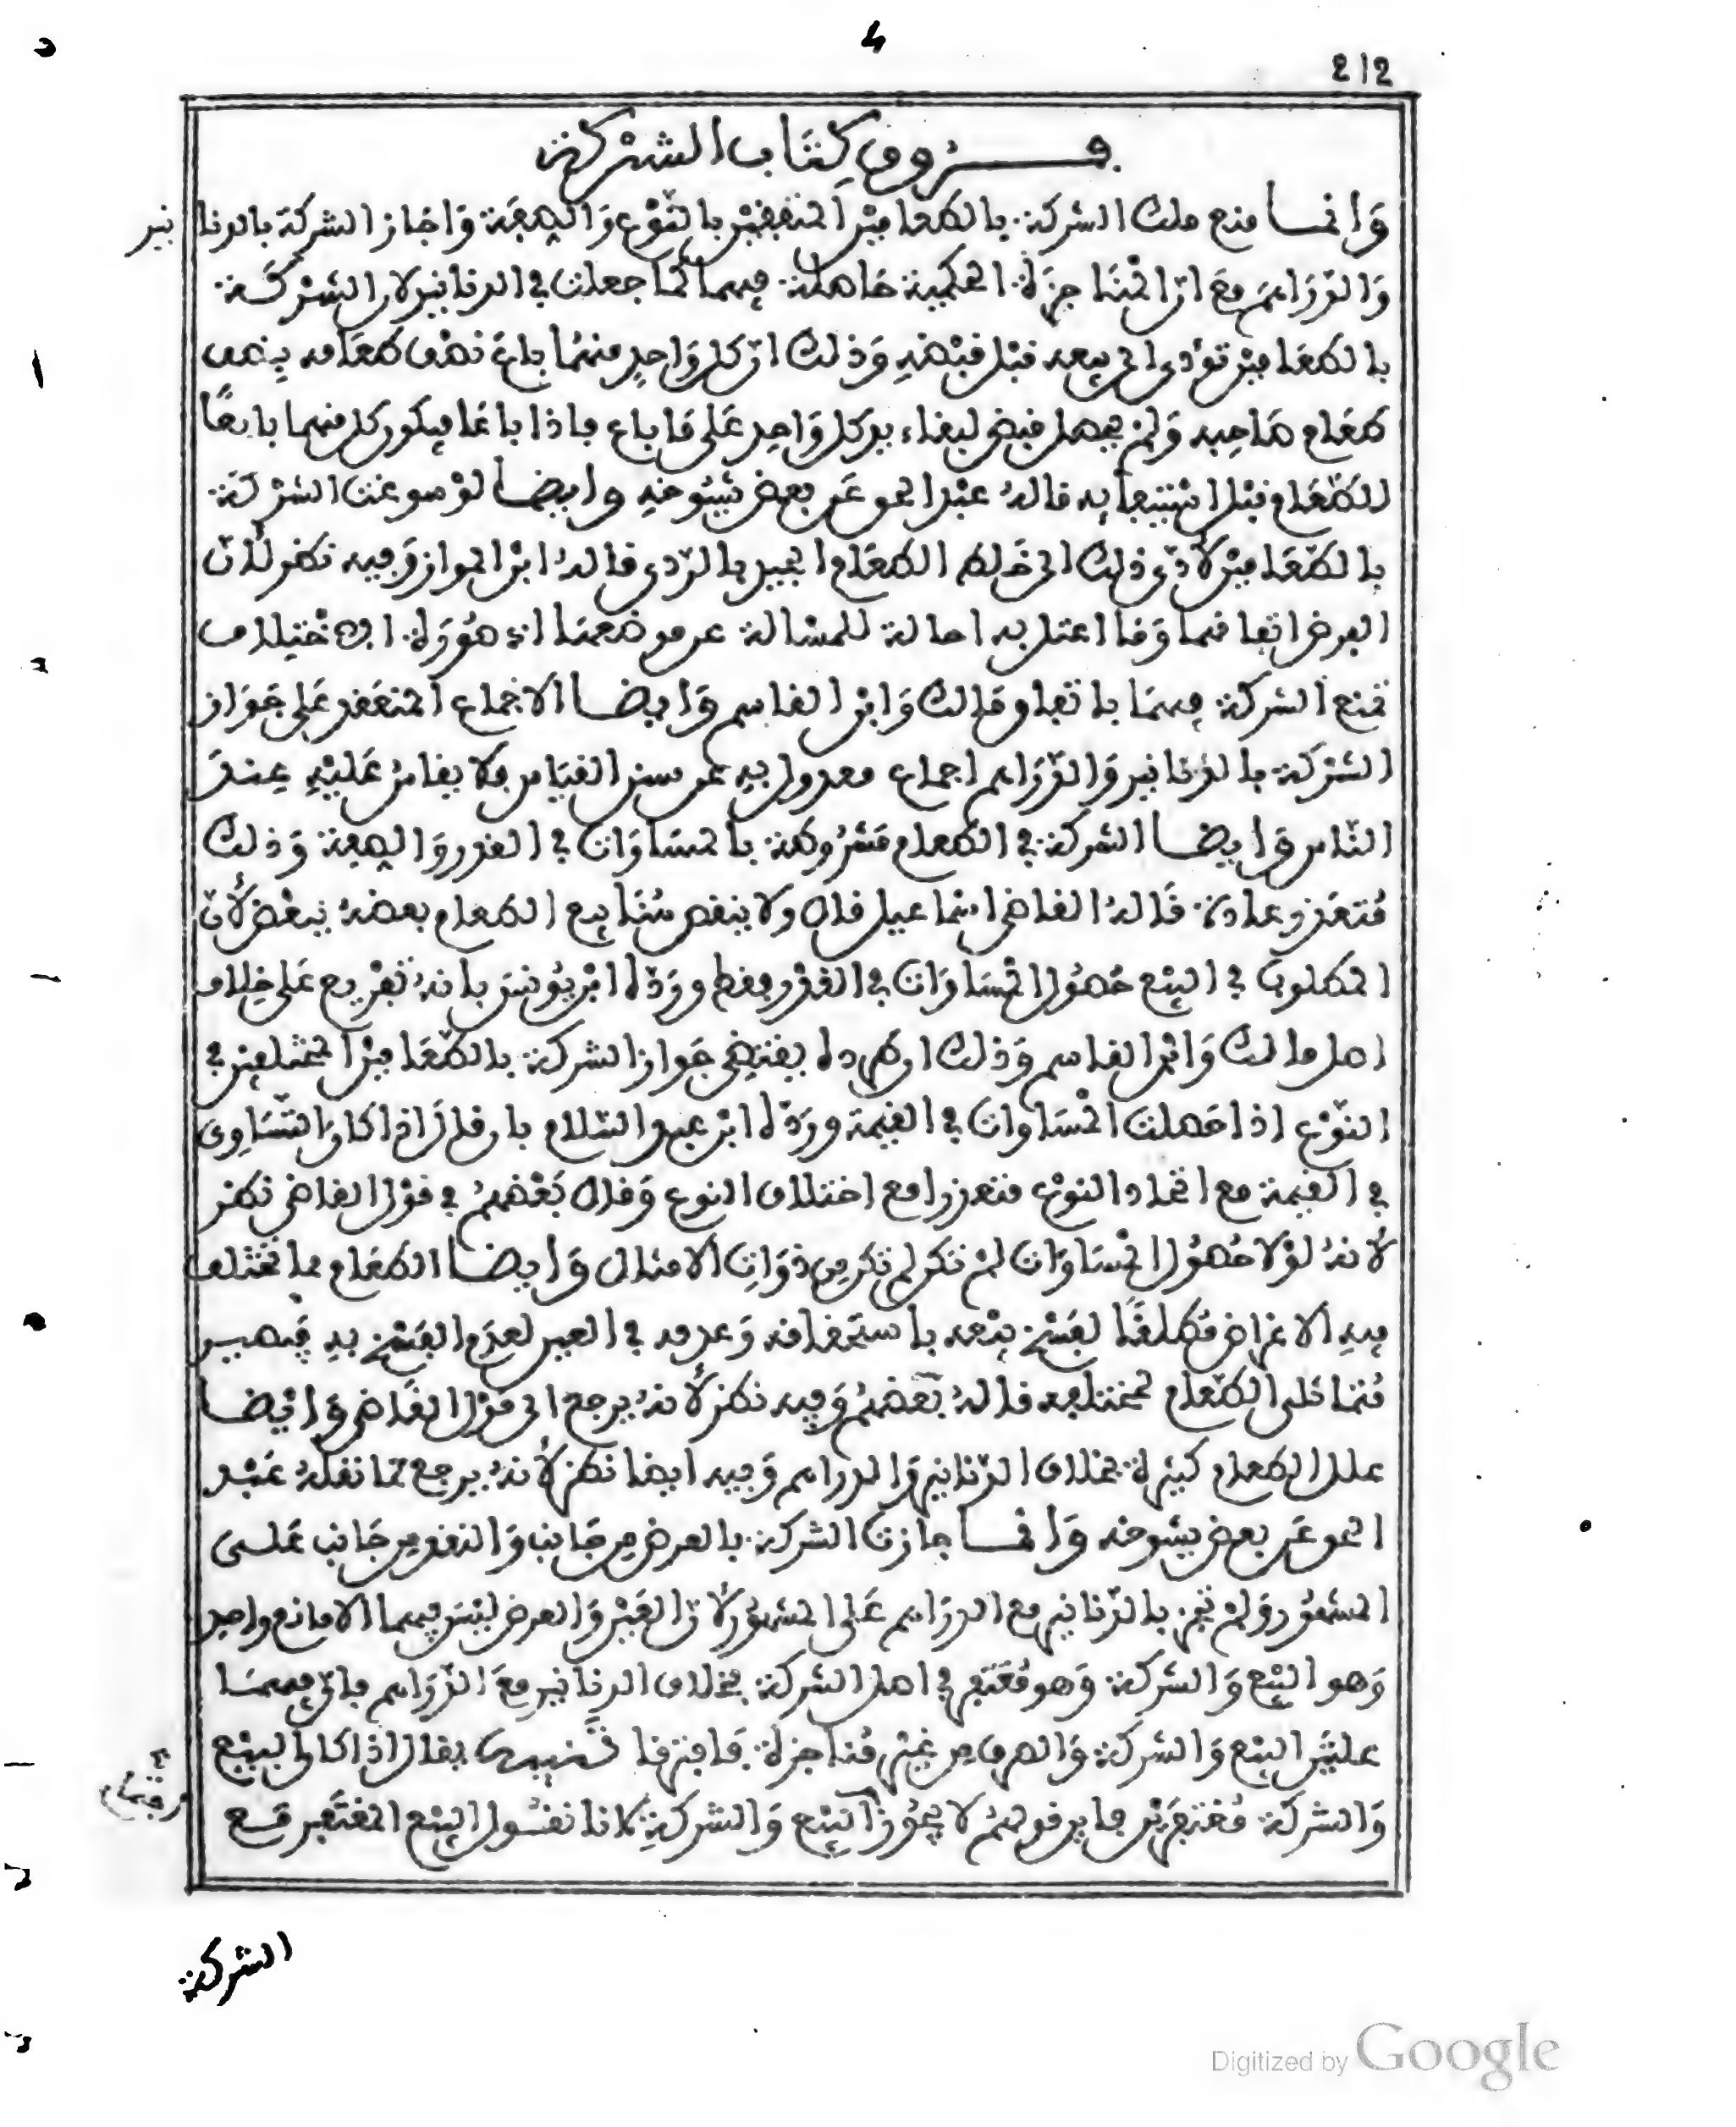 4
212
فروق كتاب الشركة
وَانما منع ملك الشركة بالطعامين المتفقين بالنوع وَالصفة وَاجاز الشركة بالدنانير
وَالدراهم مع انّ المناجزة الحكمية حاصلة فيهما كما جعلت في الدنانير لان الشركة
بالطعامين تؤدى الى بيعه قبل قبضه وَذلك انّ كل وَاحد منهما باع نصف طعامه بنصف
طعام صاحبه وَلم يحصل قبض لبقاء يد كل وَاحد على ما باع فاذا باعا فيكون كل منهما بايعًا
للطعام قبل استيفايه قاله عبد الحق عن بعض شيوخه وايضا لو سوغت الشركة
بالطعامين لأدّى ذلك الى خلط الطعام الجيد بالردى قاله ابن المواز وَفيه نظر لأنّ
الفرض اتفاقهما وَما اعتل به احالة للمسألة عن موضعها اذ صورة الاختلاف
تمنع الشركة فيها باتفاق مالك وَابن القاسم وَايضا الاجماع المنعقد على جواز
الشركة بالدنانير وَالدّرَاهم اجماع معدول به عن سنن القياس فلا يقاس عَلَيْهِ عند
النّاس وَايضا الشركة في الطعام مشروطة بالمساوات في القدر وَالصفة وَذلك
متعذر عادة قاله القاضي اسماعيل قال ولا ينقص هنا بيع الطعام بعضه ببعض لأنّ
المطلوب في البيع حصول المساوات في القدر فقط وردّه ابن يونس بانه تفريع على خلاف
اصل مالك وَابن القاسم وَذلك ان طرده يقتضي جواز الشركة بالطعامين المختلفين في
النوع اذا حصلت المساوات في القيمة وردّه ابن عبد السّلام بان قال اذا كان التساوى
في القيمة مع اتحاد النوع متعذرا فمع اختلاف النوع وَقال بعضهم في قول القاضي نظر
لانه لولا حصول المساوات لم تكن لم تكن من ذوات الامثال وَايضا الطعام مما تختلف
فيه الاغراض مطلقًا لفسخ بيعه باستحقاقه وَعدمه في العين لعدم الفسخ به فيصير
متماثل الطعام كمختلفه قاله بعضهم وَفيه نظر لأنه يرجع الى قول القاضي وَايضا
علل الطعام كثيرة بخلاف الدّنانير وَالدراهم وَفيه ايضا نظر لأنه يرجع لما نقله عبد
الحق عن بعض شيوخه وَانما جازت الشركة بالعرض من جانب وَالنقد من جانب على
المشهور وَلم تجز بالدّنانير مع الدراهم على المشهور لأنّ العَيْن وَالعرض ليس فيهما الا مانع واحد
وَهو البيع وَالشركة وَهو مغتفر في اصل الشركة بخلاف الدنانير مع الدّرَاهم فان فيهما
علتين البيع وَالشركة وَالصرف من غير مناجزة فافترقا تنبيه يقال اذا كان البيع
وَالشركة مغتفرين فاين قولهم لا يجوز البيع وَالشركة لانا نقول البيع المغتفر مع
الشركة
Digitized by Google